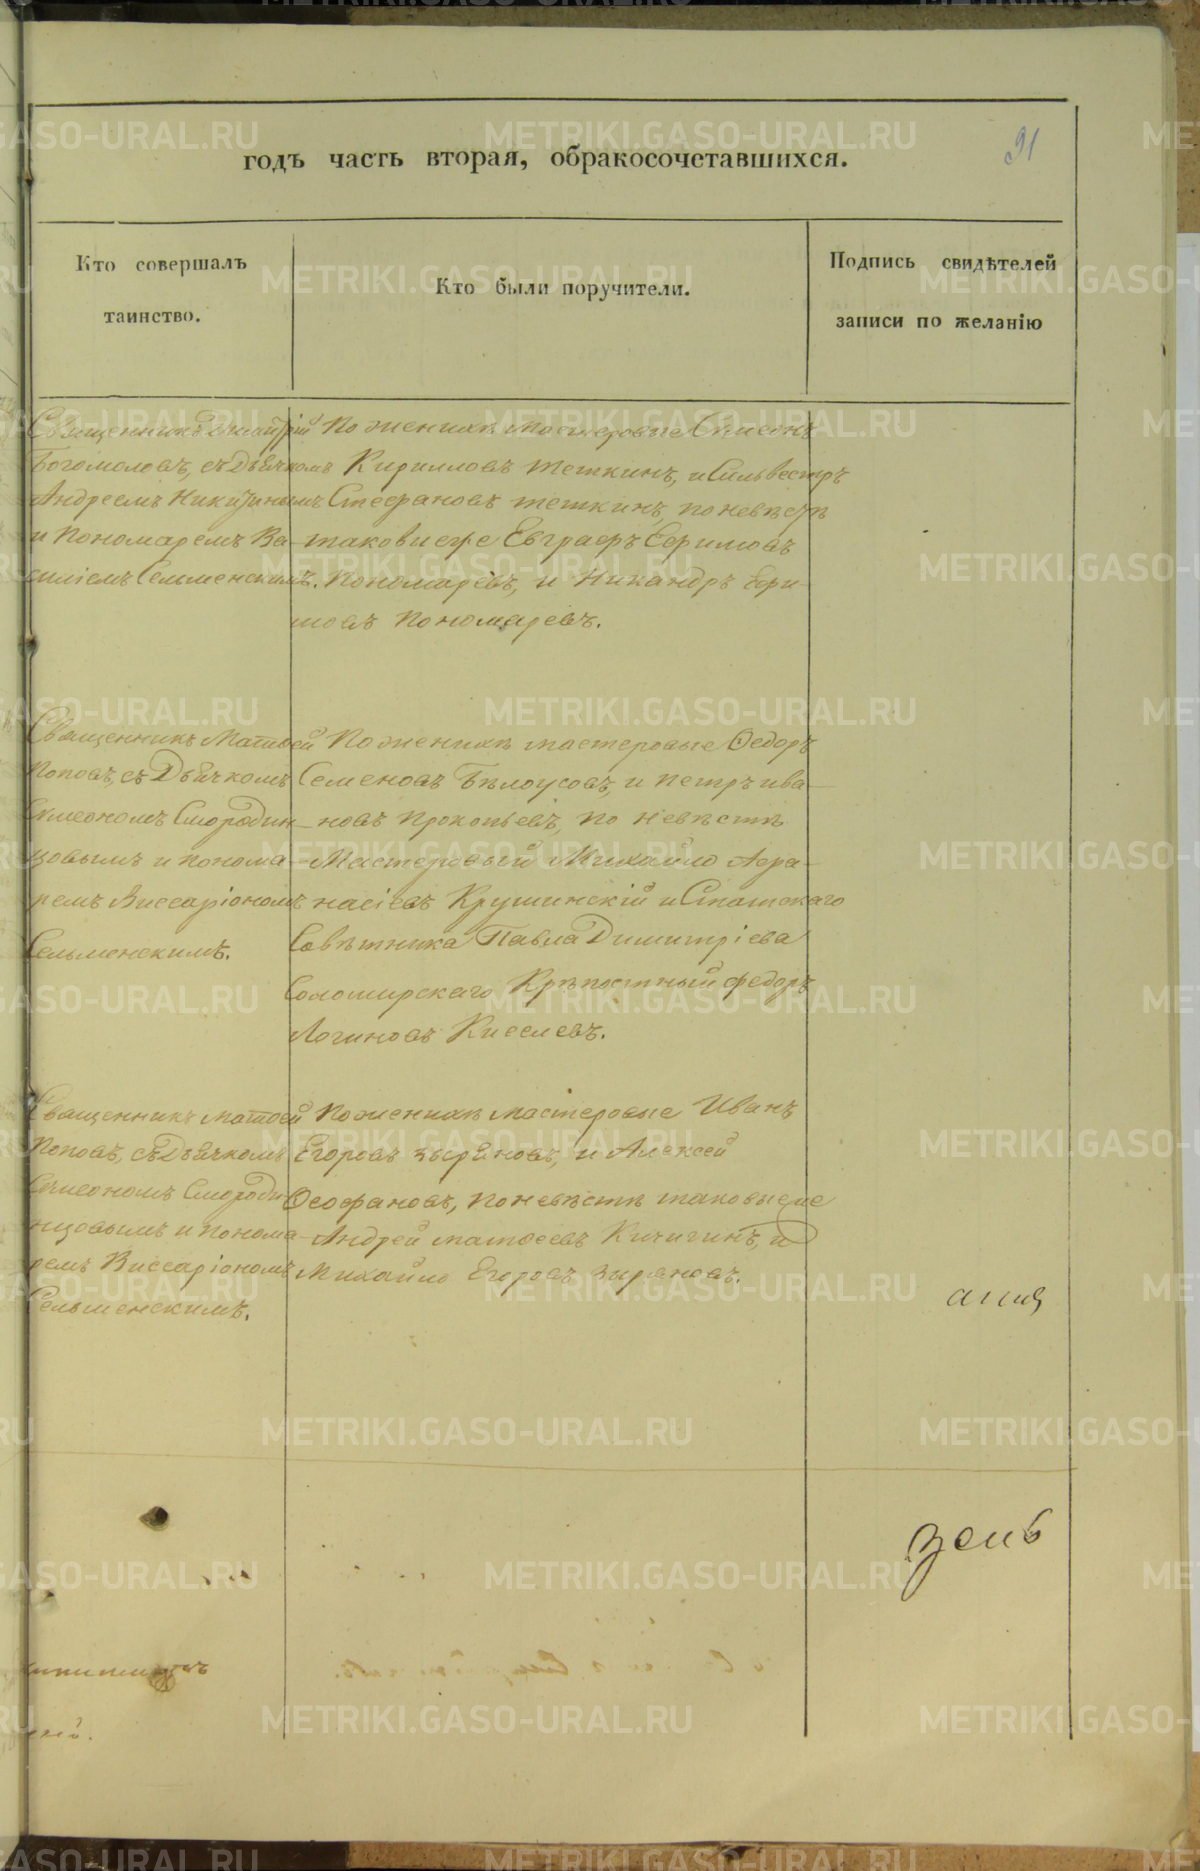 91
годъ часть вторая, обракосочетавшихся.
Кто совершалъ
таинство.
Кто были поручители.
Подпись свидѣтелей
записи по желанію
Священникъ Димитрій
Богомоловъ, съ Дьячкомъ
Андреемъ Никитинымъ
и Пономаремъ Ва-
силіемъ Сельменскимъ.
По женихѣ мастеровые Симеонъ
Кирилловъ Теткинъ, и Сильвестръ
Стефановъ Теткинъ, по невѣстѣ
таковые же Евграфъ Ефимовъ
Пономаревъ, и Никандръ Ефи-
мовъ Пономаревъ.
Священникъ Матѳей
Поповъ, съ Дьячкомъ
Симеономъ Смородин-
цовымъ и понома-
ремъ Виссаріономъ
Сельменскимъ.
По женихѣ мастеровые Ѳедоръ
Семеновъ Бѣлоусовъ, и Петръ Ива-
новъ Прокопьевъ, по невѣстѣ
Мастеровый Михайло Аѳа-
насіевъ Крушинскій и Статскаго
Совѣтника Павла Димитріева
Соломирскаго Крѣпостный Федоръ
Логиновъ Киселевъ.
Священникъ Матѳей
Поповъ, съ Дьячкомъ
Симеономъ Смороди
нцовымъ и понома-
ремъ Виссаріономъ
Сельменскимъ.
По женихѣ мастеровые Иванъ
Егоровъ Зыряновъ, и Алексей
Ѳеофановъ, по невѣстѣ таковые же
Андрей Матѳеевъ Кичигинъ, и
Михайло Егоровъ Зыряновъ.
METRIKI.GASO-URAL.RU